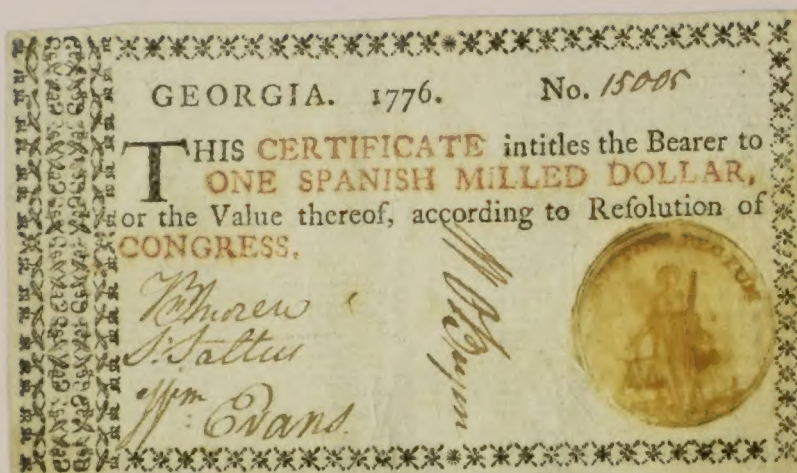 GEORGIA. 1776. No. 15005
THIS CERTIFICATE intitles the Bearer to
ONE SPANISH MILLED DOLLAR,
or the Value thereof, according to Reſolution of
CONGRESS.
S. Saltus
Wm Evans.
REGUM